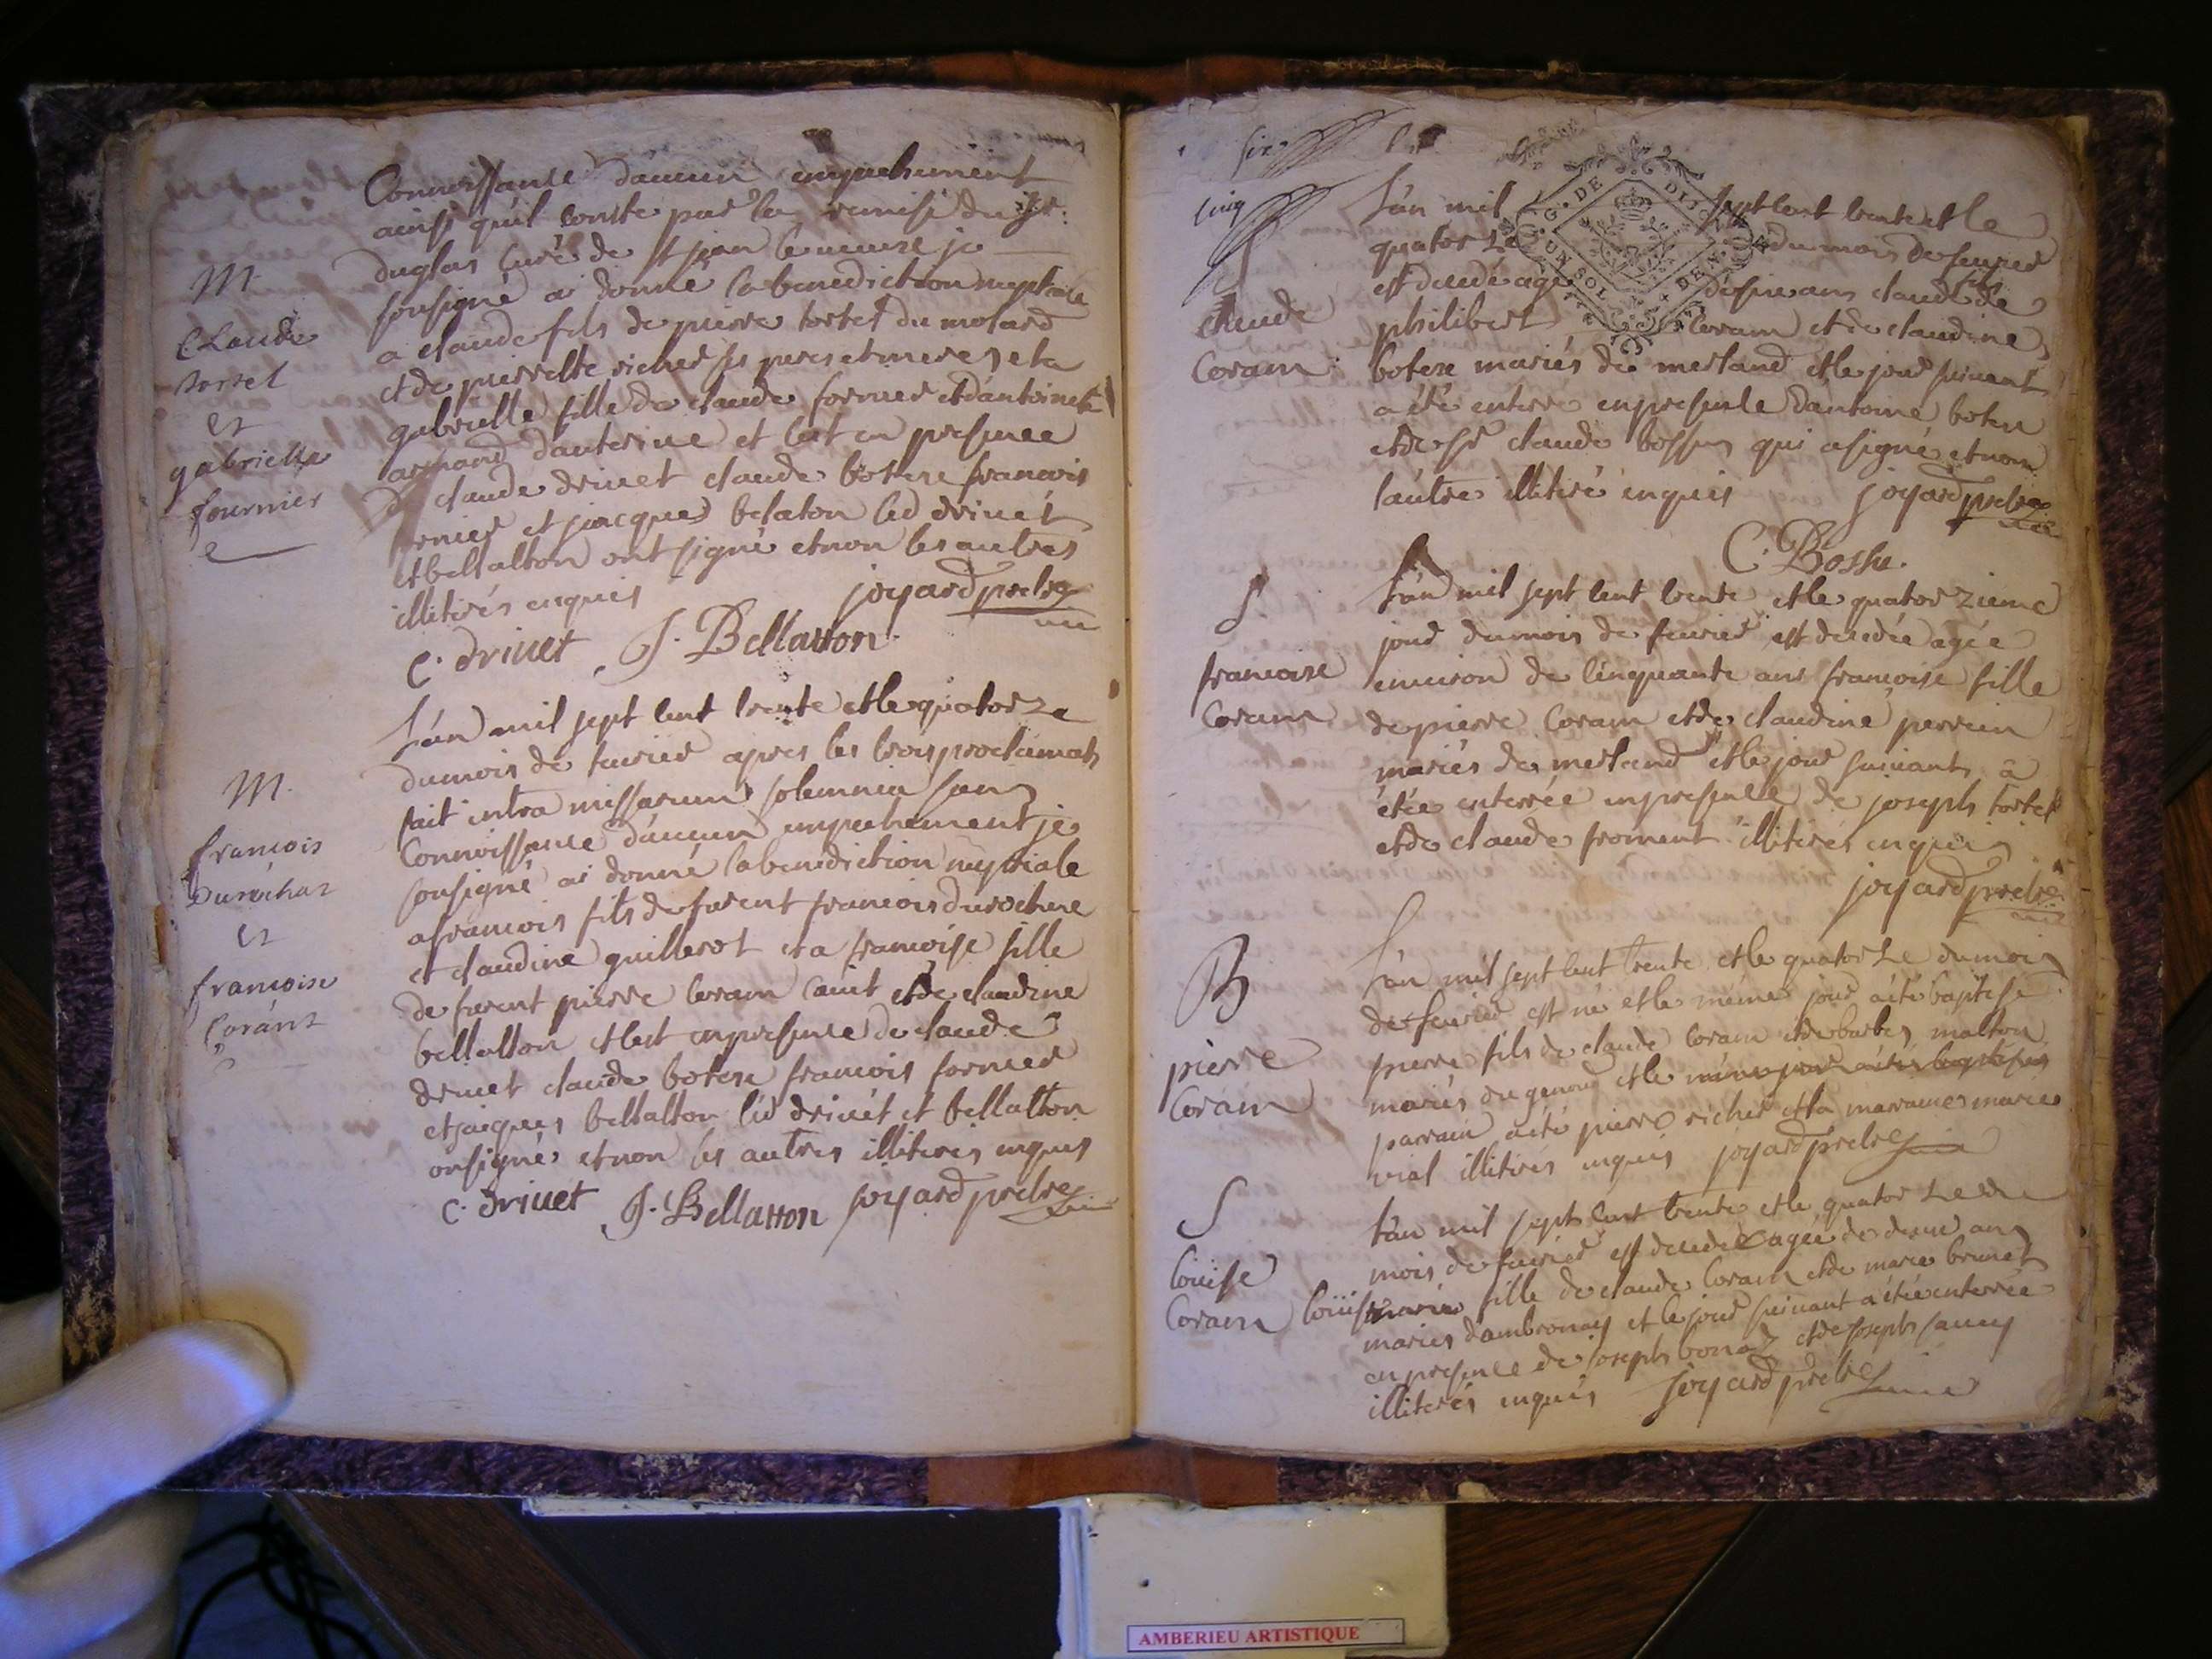 Connoissance d'aucun empechement
ainsi qu'il conste par la remise du Sr:
duglas curé de st jean le vieux je
M.
soussigné ai donné la benediction nuptiale
Claude
tortel
et
gabrielle
fournier
a claude fils de pierre tortel du molard
et de pierrette richer ses peres et meres et a
gabrielle fille de claude fornier et d'antoinete
armand dauterive et cest en presence
de claude drivet claude botere francois
fornier et jacques belaton led drivet
et bellatton ont signé et non les autres
illiterés enquis joyard pretre
C. Drivet J. Bellatton
L'an mil sept cent trente et le quatorze
du mois de fevrier apres les trois proclamat
fait intra missarum solemnia sans
M.
francois
Durochat
et
francoise
Corant
Connoissance d'aucun empechement je
soussigné ai donné la benediction nuptiale
a francois fils de furent francois durochere
et claudine guillerot et a francoise fille
de furent pierre Coram et de claudine
bellatton et cest en presence de claude
drivet claude botere francois fornier
et jacques bellatton led drivet et bellatton
on signé et non les autres illiterés enquis
C. Drivet J. Bellatton joyard pretre
six
cinq
G. DE DIJON
UN SOL DEN.
L'an mil sept cent trente et le
quatorze du mois de fevrier
est decedé agé de six ans claude fils de
S
claude
Coram
philibert Coram et de claudine
botere mariés du merland et le jour suivant
a été enterré en presence d'antoine botere
et de Sr claude bossu qui a signé et non
l'autre illiteré enquis joyard pretre
C. Bossu.
S
francoise
Coram
L'an mil sept cent trente et le quatorzieme
jour du mois de fevrier est decedée agée
environ de cinquante ans francoise fille
de pierre Coram et de claudine perrein
mariés de merland et le jour suivant a
étée enterrée en presence de joseph tortel
et de claude froment illiterés enquis
joyard pretre
B
pierre
Coram
L'an mil sept cent trente et le quatorze du mois
de fevrier est né et le même jour a été baptisé
pierre fils de claude Coram et de barbe malton
mariés du genoud et le même jour a été baptisé
parrain a été pierre richer et la marraine marie
vial illiterés enquis joyard pretre
S
louise
Coram
L'an mil sept cent trente et le quatorze du
mois de fevrier est decedée agée de deux ans
louise marie fille de claude Coram et de marie brunet
mariés d'ambronay et le jour suivant a étée enterrée
en presence de joseph bonaz et de joseph
illiterés enquis joyard pretre
AMBERIEU ARTISTIQUE